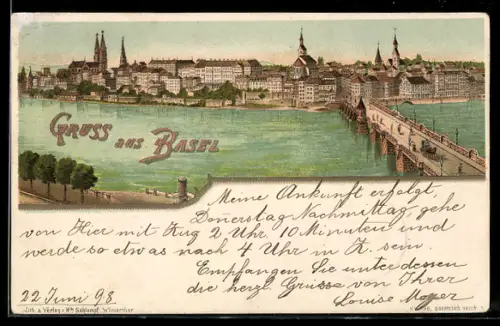 Gruss aus Basel
Meine Ankunft erfolgt
Donerstag Nachmittag, gehe
von Hier mit Zug 2 Uhr 10 Minuten und
werde so etwas nach 4 Uhr in Z. sein.
Empfangen Sie unterdessen
die herzl. Grüsse von Ihrer
22 Juni 98. Louise Moser
Lith. & Verlag v. Schlumpf, Winterthur